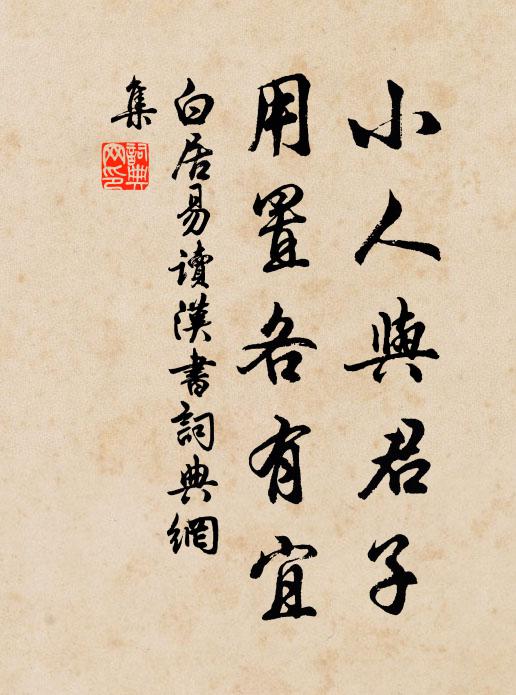 小人與君子
用置各有宜
白居易讀漢書詞典網
集
詞典
网印